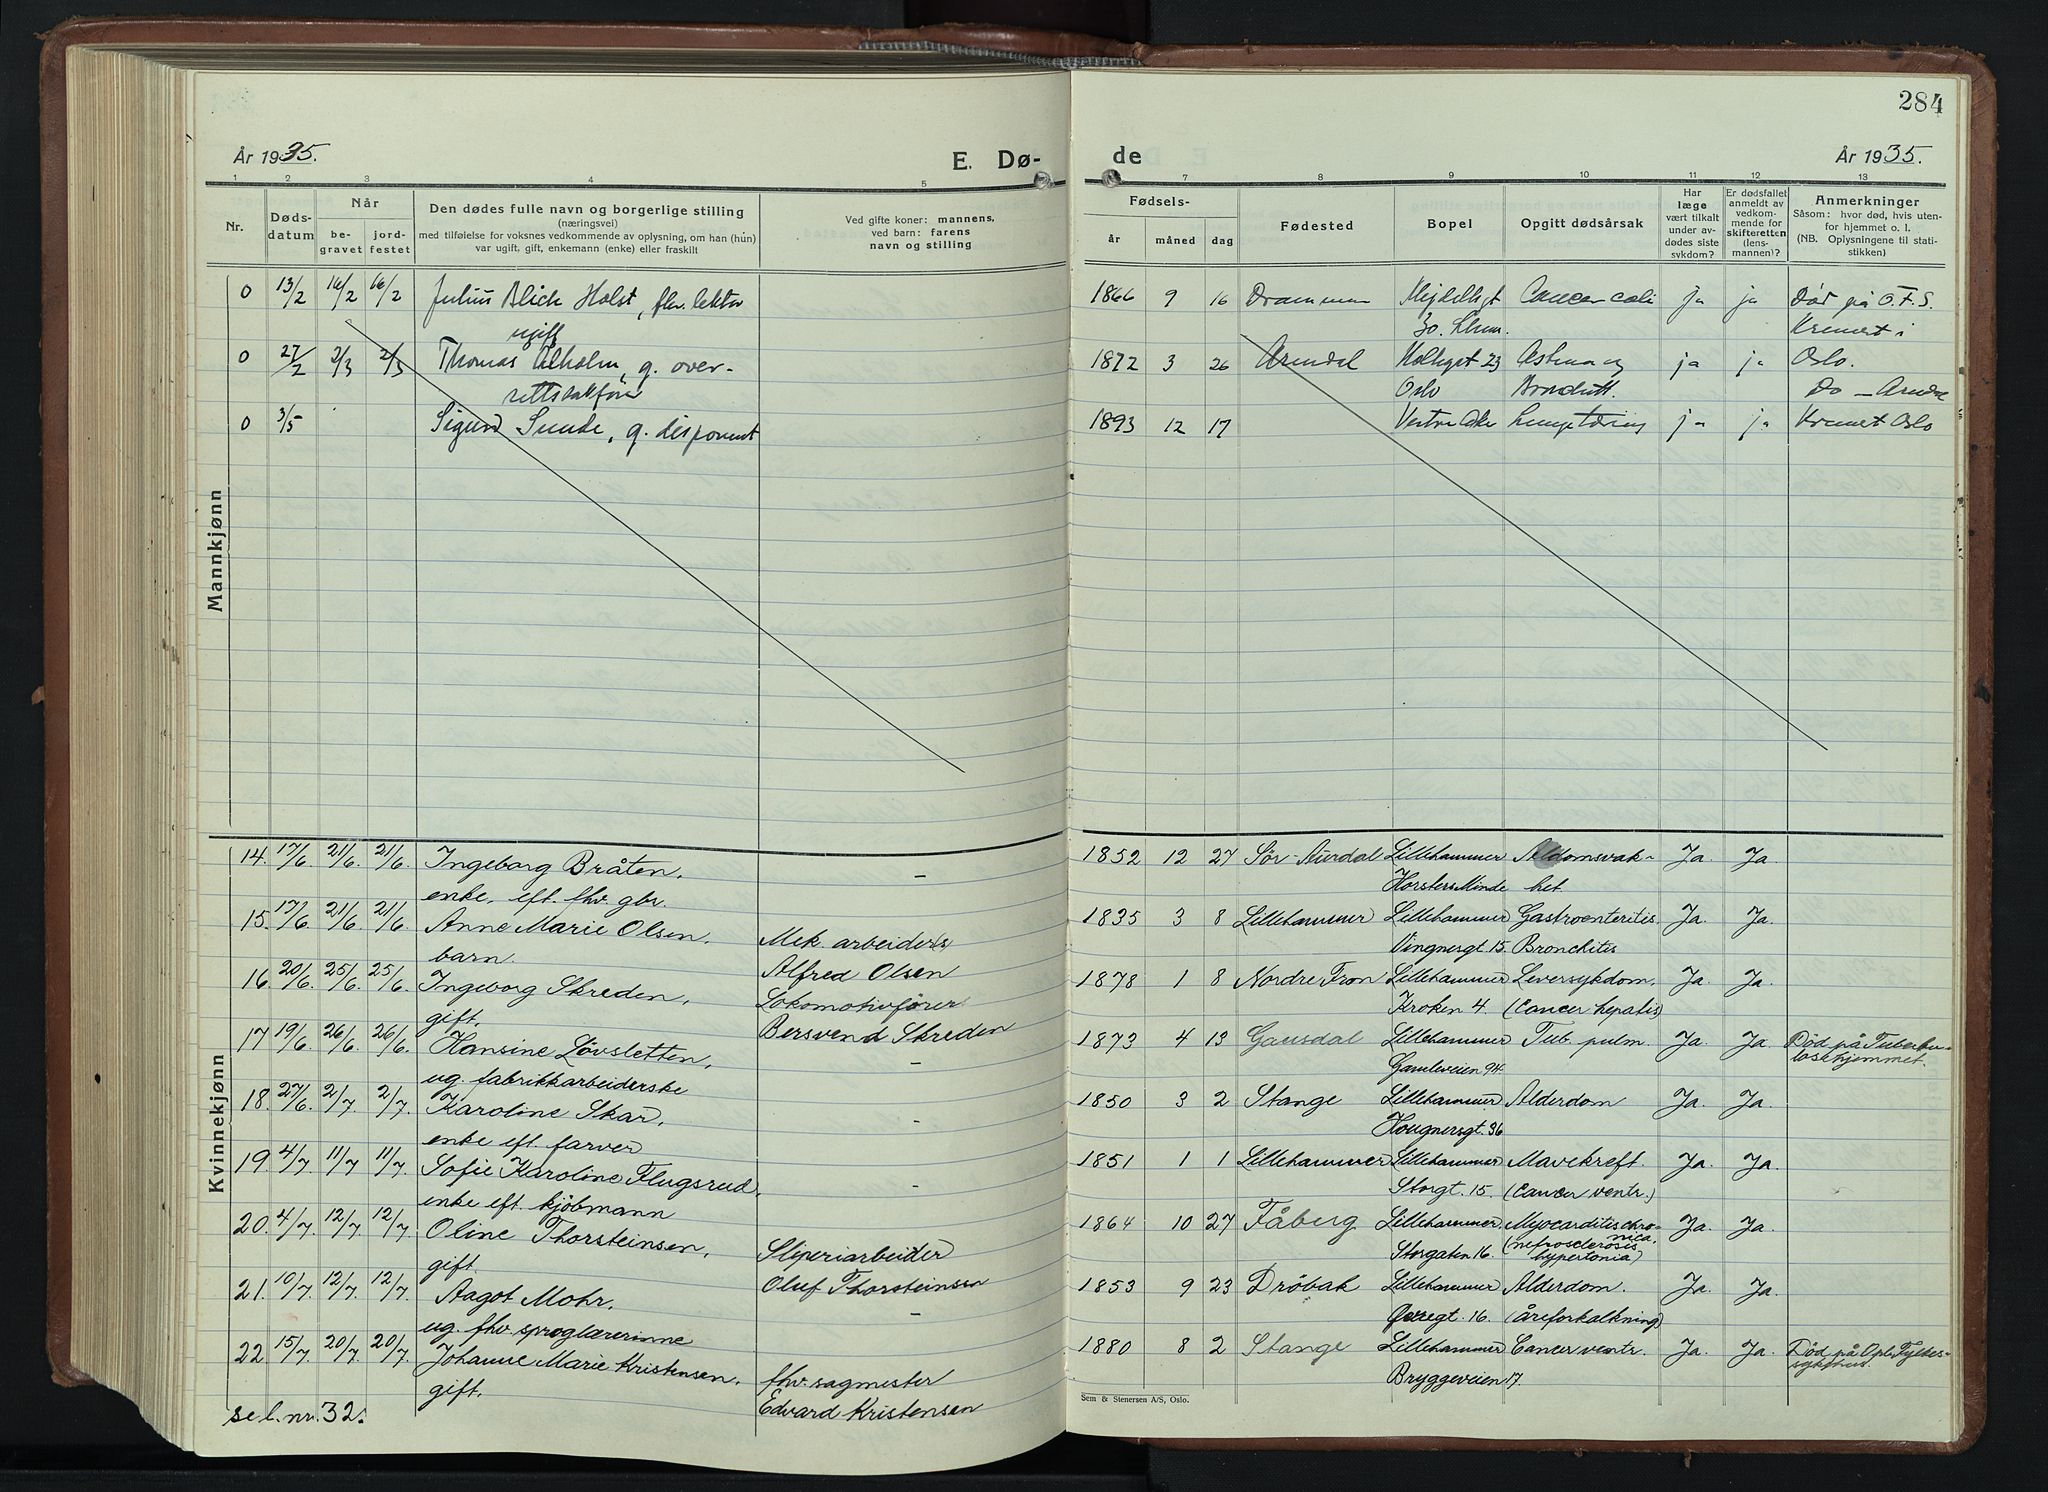 284
År 1935.
E. Dø-
de
År 1935.
1 2 3 4 5
7 8 9 10 11 12 13
Nr.
Døds-
datum
Når
be-
gravet
jord-
festet
Den dødes fulle navn og borgerlige stilling
(næringsvei)
med tilføielse for voksnes vedkommende av oplysning, om han (hun)
var ugift, gift, enkemann (enke) eller fraskilt
Ved gifte koner: mannens,
ved barn: farens
navn og stilling
Fødsels-
år måned dag
Fødested
Bopel
Opgitt dødsårsak
Har
læge
vært tilkalt
under av-
dødes siste
sykdom?
Er dødsfallet
anmeldt av
vedkom-
mende for
skifteretten
(lens-
mannen)?
Anmerkninger
Såsom: hvor død, hvis uten-
for hjemmet o. l.
(NB. Oplysningene til stati-
stikken)
Mannkjønn
0 13/2 16/2 16/2 Julius Blich Holst, fhv. lektor 1866 9 16 Drammen Mejdellsgt Cancer coli ja ja Død på O.F.S.
ugift 30. Lhmr. Kremert i
0 27/2 2/3 2/3 Thomas Alholm, g. over- 1872 3 26 Arendal 23 Astma og ja ja Oslo.
rettssakfører Oslo Bronchitt. Do — Arendal
0 3/5 Sigurd Sunde, g. disponent 1893 12 17 Vestre Aker Lungetæring ja ja Kremert Oslo
Kvinnekjønn
14. 17/6. 21/6. 21/6. Ingeborg Bråten, - 1852 12 27 Sør-Aurdal Lillehammer Alldomsvak- Ja. Ja.
enke. eft. fhv. gbr. Horsters Minde het
15. 17/6. 21/6. 21/6. Anne Marie Olsen. Mek. arbeiders 1835 3 8 Lillehammer Lillehammer Gastroenteritis Ja. Ja.
barn. Alfred Olsen Vingnesgt. 15. Bronchitis
16. 20/6. 25/6. 25/6. Ingeborg Skreden, Lokomotivfører 1878 1 8 Nordre Fron Lillehammer Leversykdom. Ja. Ja.
gift. Bersvend Skreden Kroken 4. (Cancer hepatis)
17 19/6. 26/6. 26/6. Hansine Løvsletten, - 1873 4 13 Gausdal Lillehammer Tub. pulm. Ja. Ja. Død på Tuberku-
ug. fabrikkarbeiderske Gamleveien 94. losehjemmet.
18. 27/6. 2/7. 2/7. Karoline Skar, - 1850 3 2 Stange Lillehammer Alderdom Ja. Ja.
enke eft. farver Hougnersgt. 36
19. 4/7. 11/7. 11/7. Sofie Karoline Flugsrud, - 1851 1 1 Lillehammer Lillehammer Mavekreft. Ja. Ja.
enke eft. kjøbmann Storgt. 15. (Cancer ventr.)
20. 4/7. 12/7. 12/7. Oline Thorsteinsen, Sliperiarbeider 1864 10 27 Fåberg Lillehammer, Myocarditis chro- Ja. Ja.
nica.
gift. Oluf Thorsteinsen Storgaten 16. (nefrosclerosis
hypertonia)
21. 10/7. 12/7. 12/7. Aagot Mohr, - 1853 9 23 Drøbak Lillehammer Alderdom. Ja. Ja.
ug. fhv. sproglærerinne 16. (Åreforkalkning)
22 15/7. 20/7. 20/7. Johanne Marie Kristensen, fhv. sagmester 1880 8 2 Stange Lillehammer Cancer ventr. Ja. Ja. Død på Opl. Fylkes-
sykehus.
gift. Edvard Kristensen Bryggeveien 17.
se l. nr. 32.
Sem & Stenersen A/S, Oslo.